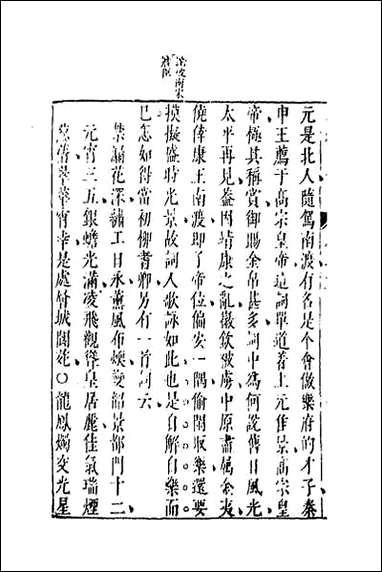 說破南宋
元是北人隨駕南渡有名是个會做樂府的才子秦
申王薦于高宗皇帝這詞單道着上元佳景高宗皇
帝極其稱賞御賜金帛甚多詞中為何說舊日風光
太平再見蓋因靖康之亂徽欽被虜中原盡屬金夷
僥倖康王南渡即了帝位偏安一隅偷閑取樂還要
摸擬盛時光景故詞人歌詠如此也是自解自樂而
已怎如得當初柳耆卿另有一首詞云
禁漏花深繡工日永薰風布煖變韶景都門十二
元宵三五銀蟾光滿凌飛觀聳皇居麗佳氣瑞煙
葱蒨翠華宵幸是處層城閬苑○龍鳳燭交光星